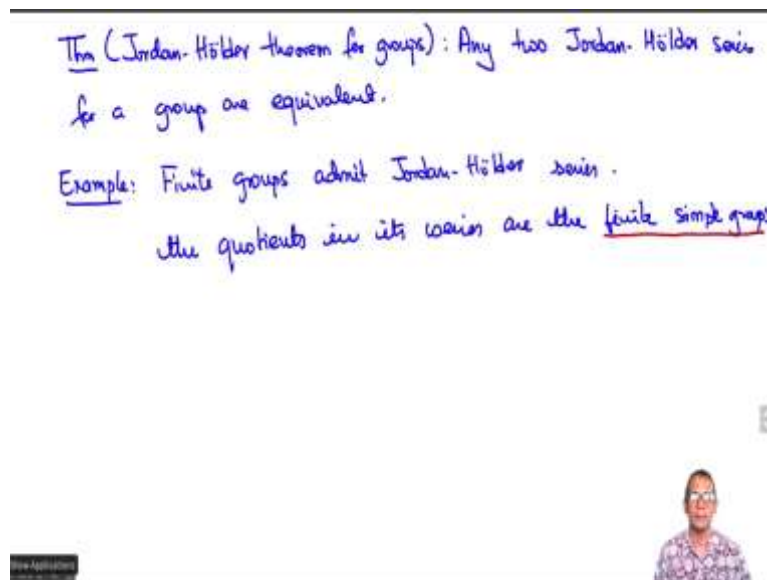 Thm (Jordan-Hölder theorem for groups): Any two Jordan-Hölder series
for a group are equivalent.
Example: Finite groups admit Jordan-Hölder series.
the quotients in its series are the finite simple groups